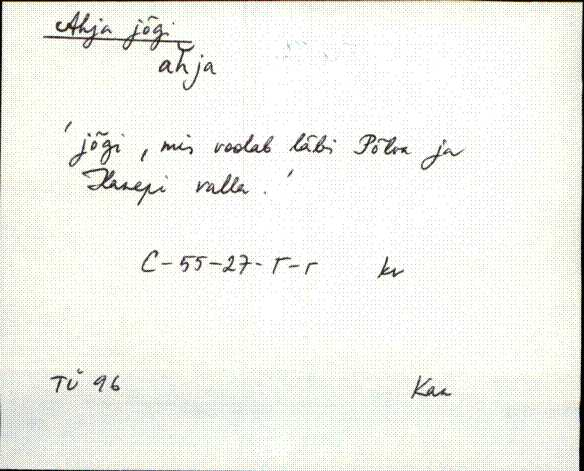 Ahja jõgi
ah̆ja
'jõgi, mis voolab läbi Põlva ja
valla.'
C-55-27-Г-г kv
TÜ 96 Kan